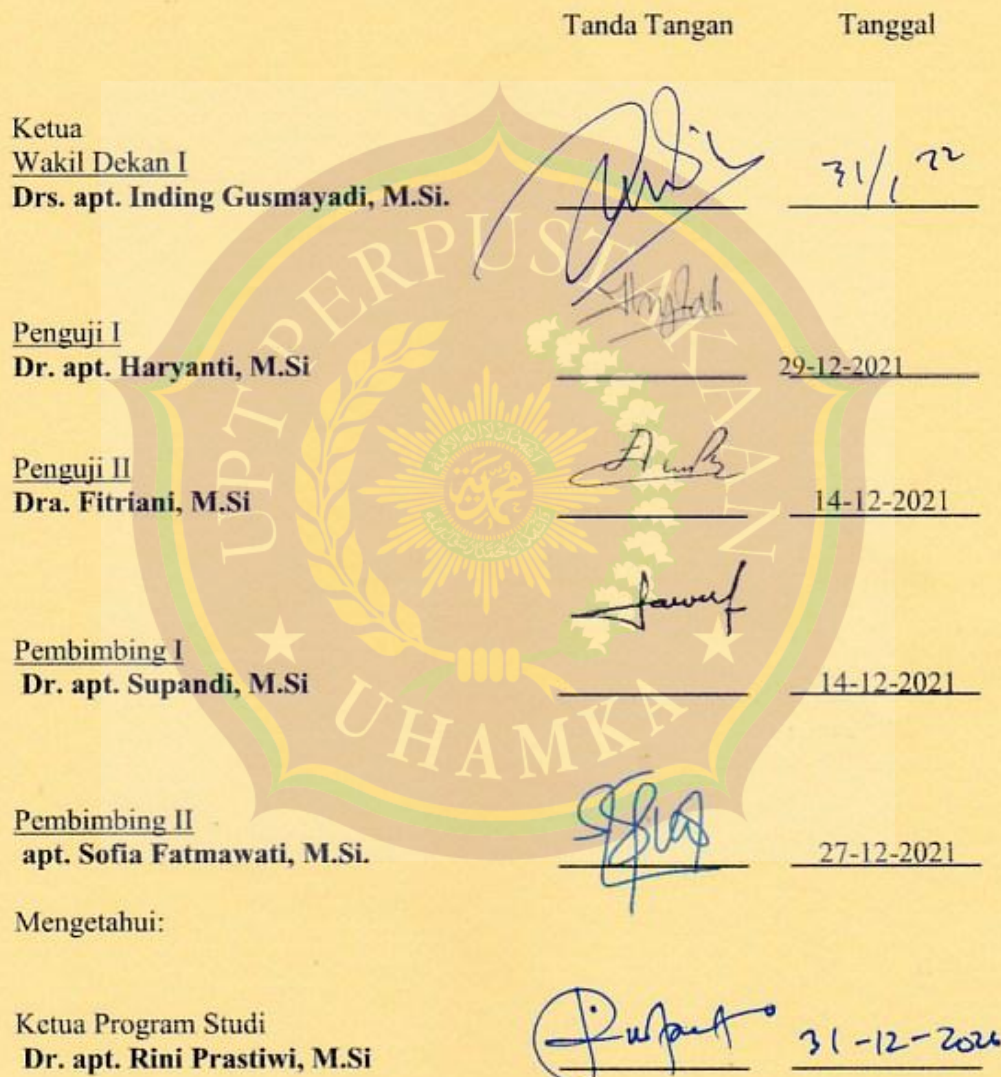 Tanda Tangan Tanggal
Ketua
Wakil Dekan I
Drs. apt. Inding Gusmayadi, M.Si.
31/1 22
Penguji I
Dr. apt. Haryanti, M.Si
29-12-2021
Penguji II
Dra. Fitriani, M.Si
14-12-2021
Pembimbing I
Dr. apt. Supandi, M.Si
14-12-2021
Pembimbing II
apt. Sofia Fatmawati, M.Si.
27-12-2021
Mengetahui:
Ketua Program Studi
Dr. apt. Rini Prastiwi, M.Si
31-12-2021
UPT PERPUSTAKAAN
UHAMKA